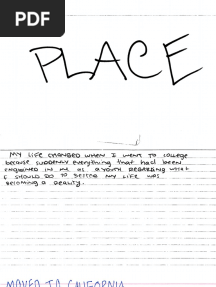 PDF
PLACE
MY LIFE CHANGED WHEN I WENT TO COLLEGE
BECAUSE SUDDENLY EVERYTHING THAT HAD BEEN
ENGRAINED IN ME AS A YOUTH REGARDING WHAT
I SHOULD DO TO BETTER MY LIFE WAS
BECOMING A REALITY.
MOVED TO CALIFORNIA